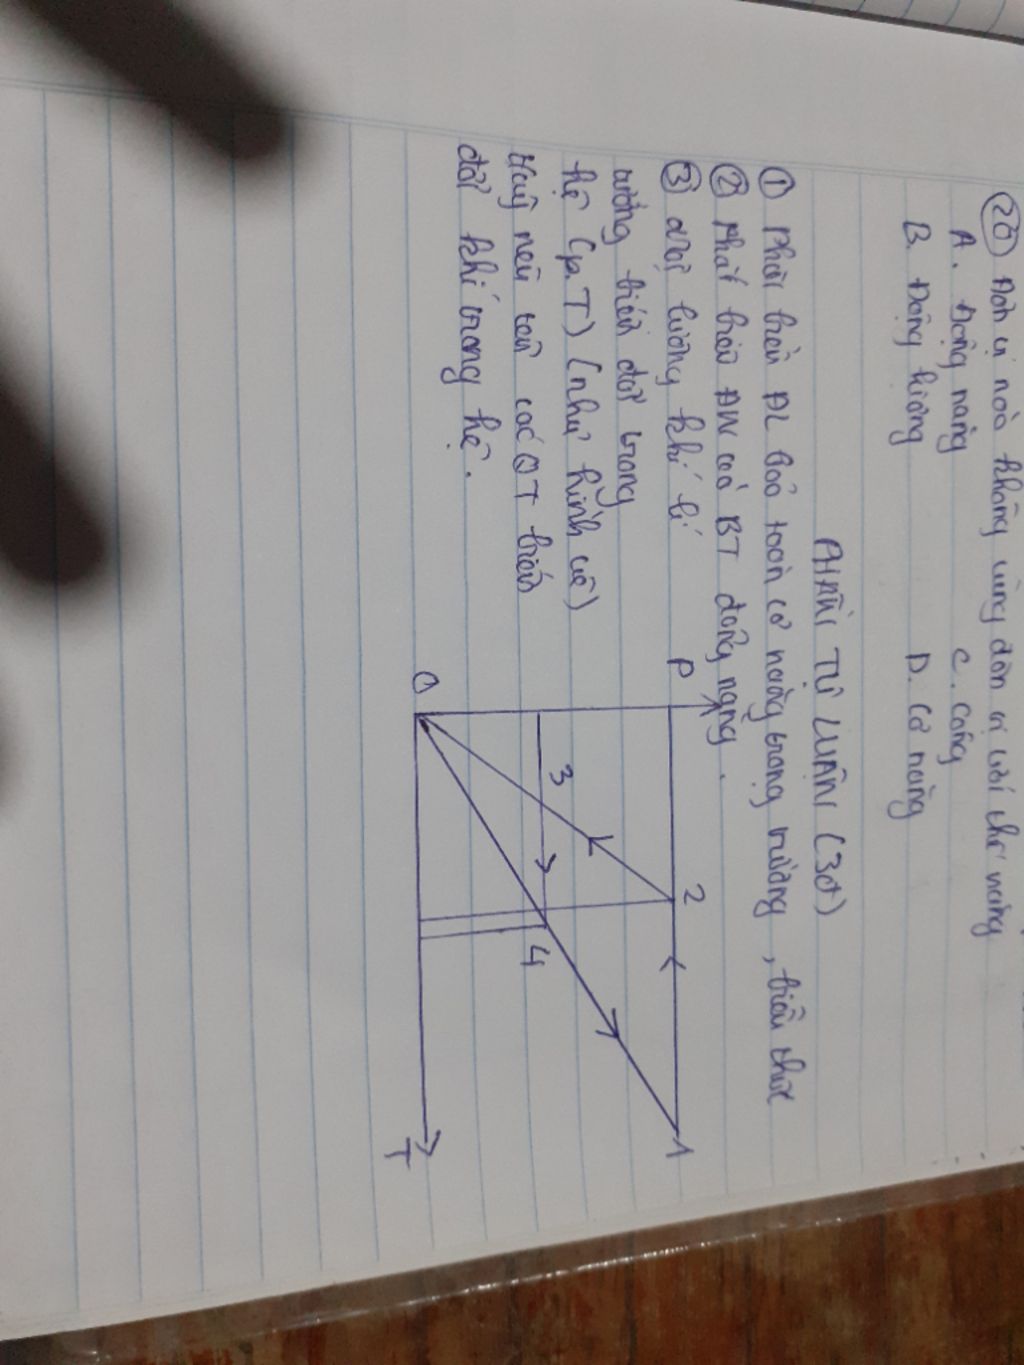 20 Đơn vị nào không cùng đơn vị với thế năng
A. Động năng C. công
B. Động lượng D. Cơ năng
PHẦN TỰ LUẬN (3đ)
① Phát biểu ĐL bảo toàn cơ năng trong trường, biểu thức
② Phát biểu ĐN và BT động năng.
③ một lượng khí lí
tưởng biến đổi trong
hệ (p.T) (như hình vẽ)
Hãy nêu tên các QT biến
đổi khí trong hệ.
P
2
1
3
4
O
T